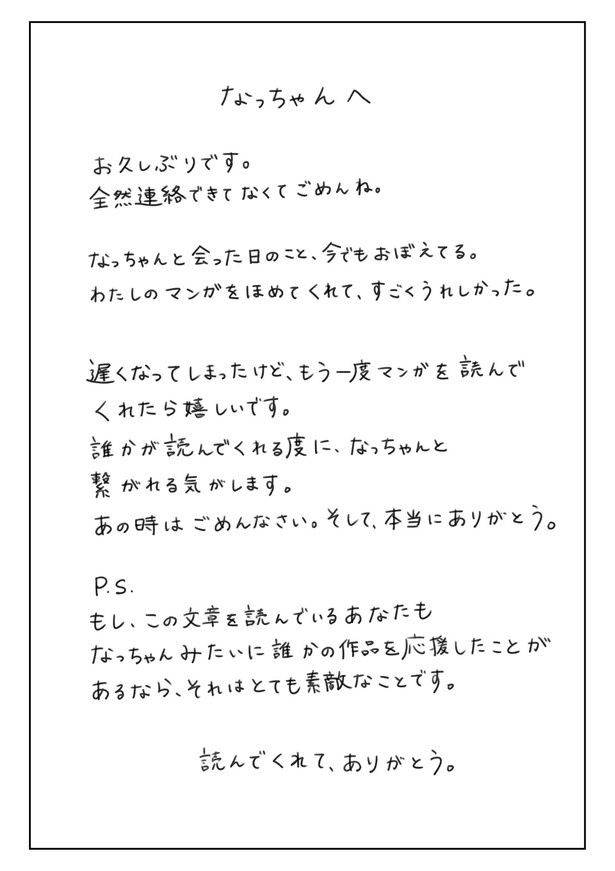 なっちゃんへ
お久しぶりです。
全然連絡できてなくてごめんね。
なっちゃんと会った日のこと、今でもおぼえてる。
わたしのマンガをほめてくれて、すごくうれしかった。
遅くなってしまったけど、もう一度マンガを読んで
くれたら嬉しいです。
誰かが読んでくれる度に、なっちゃんと
繋がれる気がします。
あの時はごめんなさい。そして、本当にありがとう。
P.S.
もし、この文章を読んでいるあなたも
なっちゃんみたいに誰かの作品を応援したことが
あるなら、それはとても素敵なことです。
読んでくれて、ありがとう。